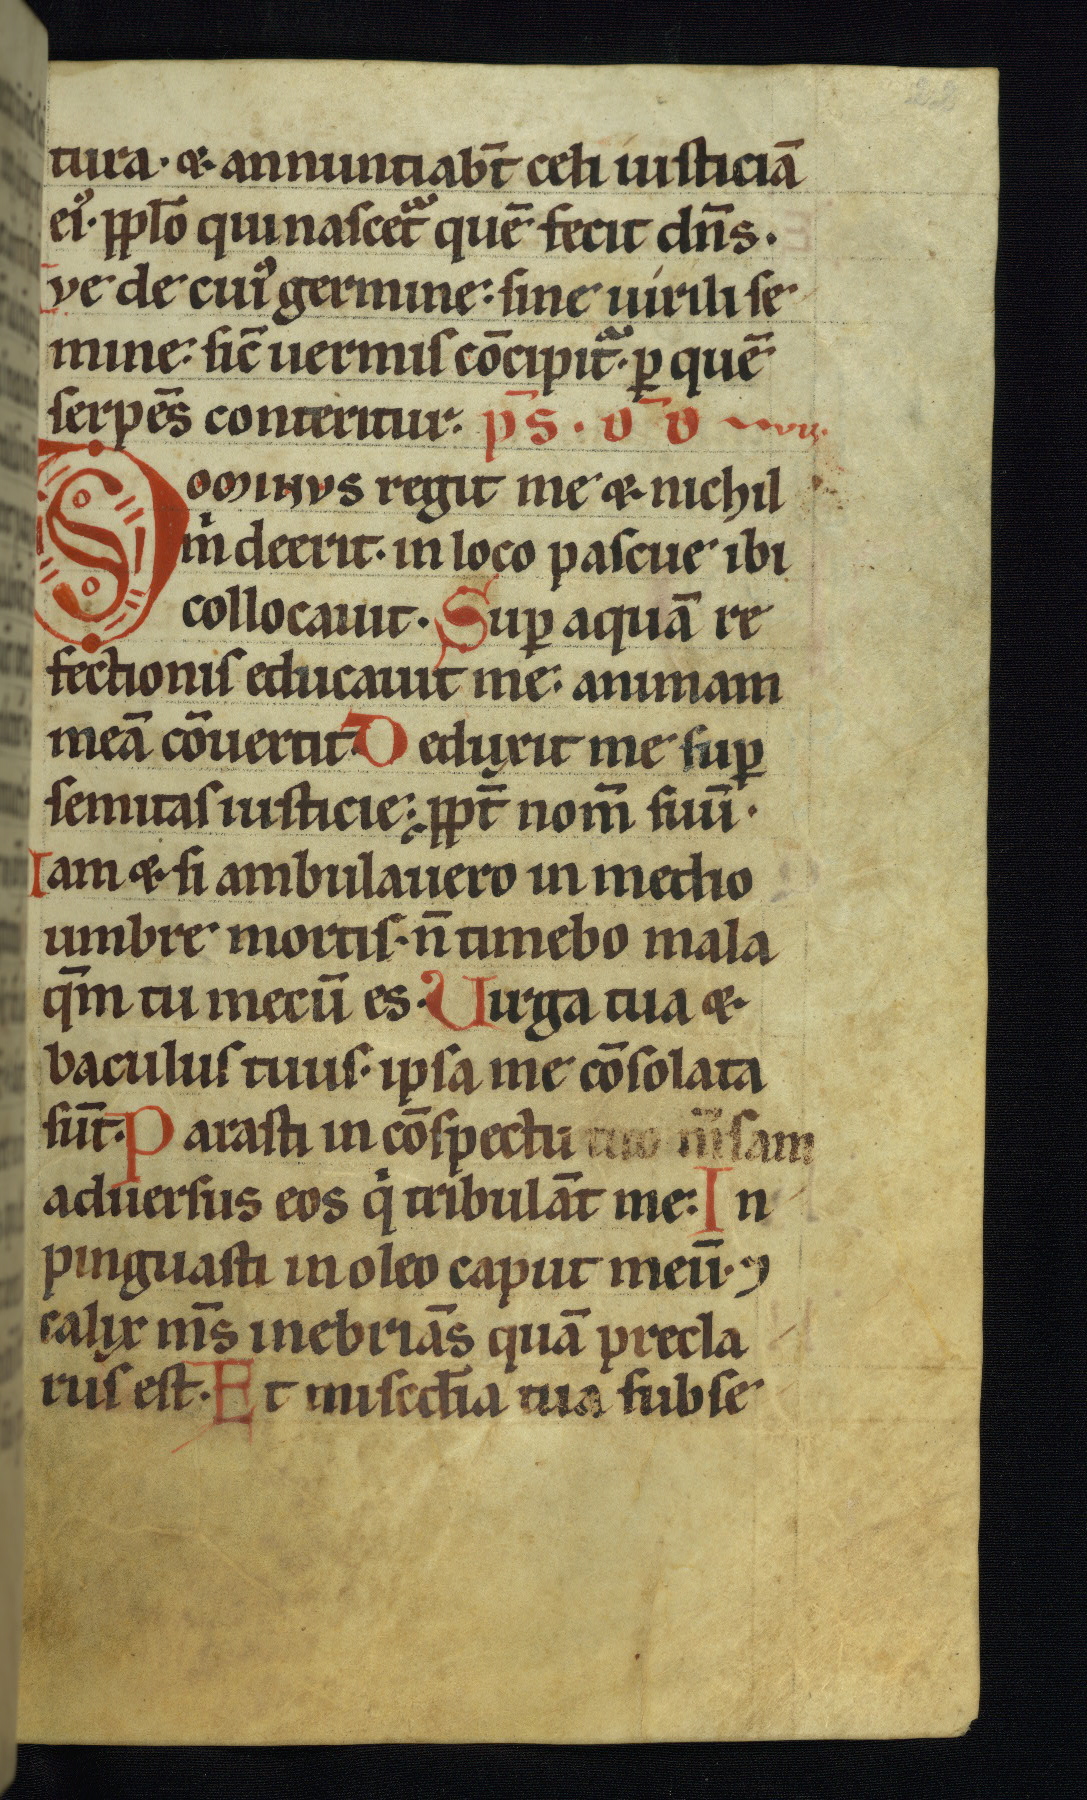 tura· ⁊ annuntiab̄t celi iusticiā
ei᷒· pp̄lo qui nascet᷑ quē fecit dn̄s·
ve de cui᷒ germine: sine uirili se
mine: sic̄ uermis cōcipit᷑· ꝑ quē
serpēs conteritur: p̄s· d̄d
Dominvs regit me ⁊ nichil
m̍ deerit· in loco pascue ibi
collocauit· Suꝑ aquā re
fectionis educauit me: animam
meā cōuertit· Deduxit me suꝑ
semitas iusticie: ppt̄ nom̄ suū·
Iam ⁊ si ambulauero in medio
umbre mortis· n̄ timebo mala
qm̄ tu mecū es· Uirga tua ⁊
baculus tuus· ipsa me cōsolata
sūt· Parasti in cōspectu tuo m̄sam
aduersus eos q̍ tribulāt me: In
pinguasti in oleo caput meū· ⁊
calix m̄s inebriās quā precla
rus est· Et misc̄dia tua subse